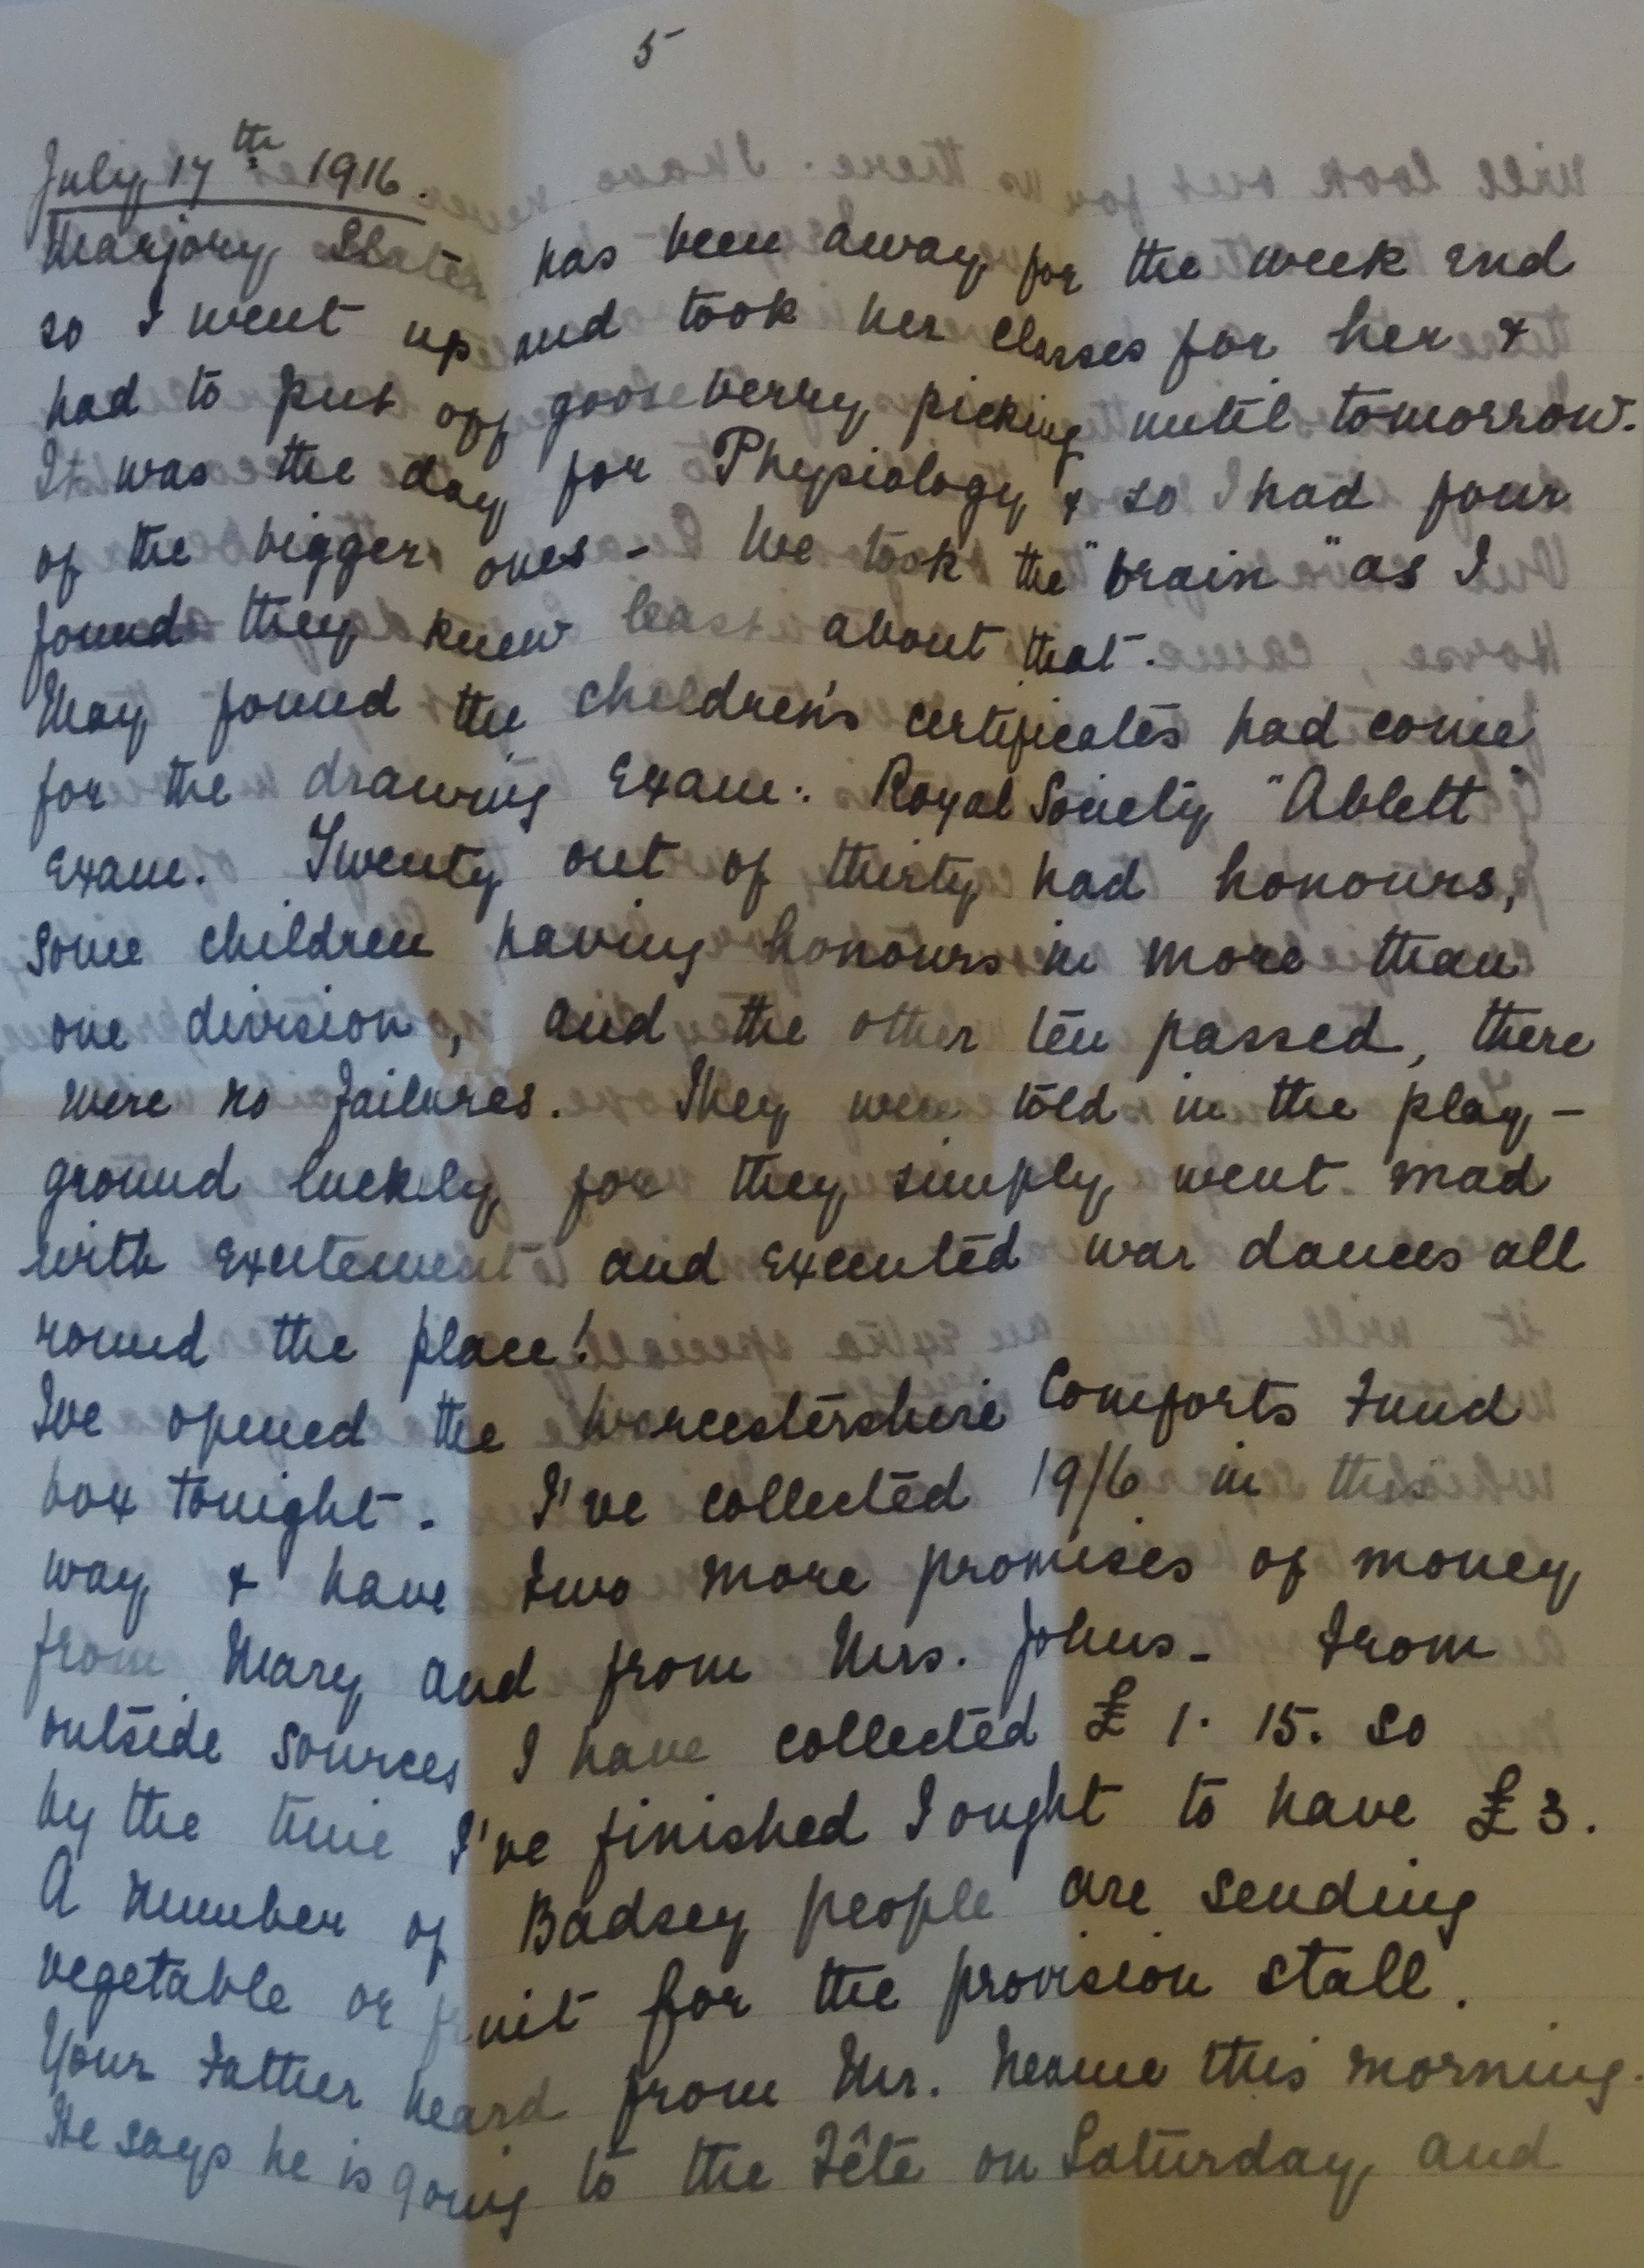 5
July 17th 1916.
Marjory Slater has been away for the week end
so I went up and took her classes for her &
had to put off gooseberry picking until tomorrow.
It was the day for Physiology & so I had four
of the bigger ones - We took the "brain" as I
found they knew least about that.
May found the children's certificates had come
for the drawing Exam: Royal Society "Ablett"
Exam. Twenty out of thirty had honours,
some children having honours in more than
one division, and the other ten passed, there
were no failures. They were told in the play-
ground luckily for they simply went mad
with excitement and executed war dances all
round the place!
I've opened the Worcestershire Comforts Fund
box tonight - I've collected 19/6 in this
way & have two more promises of money
from Mary and from Mrs. Johns - From
outside sources I have collected £1. 15. so
by the time I've finished I ought to have £3.
A number of Badsey people are sending
vegetable or fruit for the provision stall.
Your Father heard from Mr. Neame this morning.
He says he is going to the Fête on Saturday and